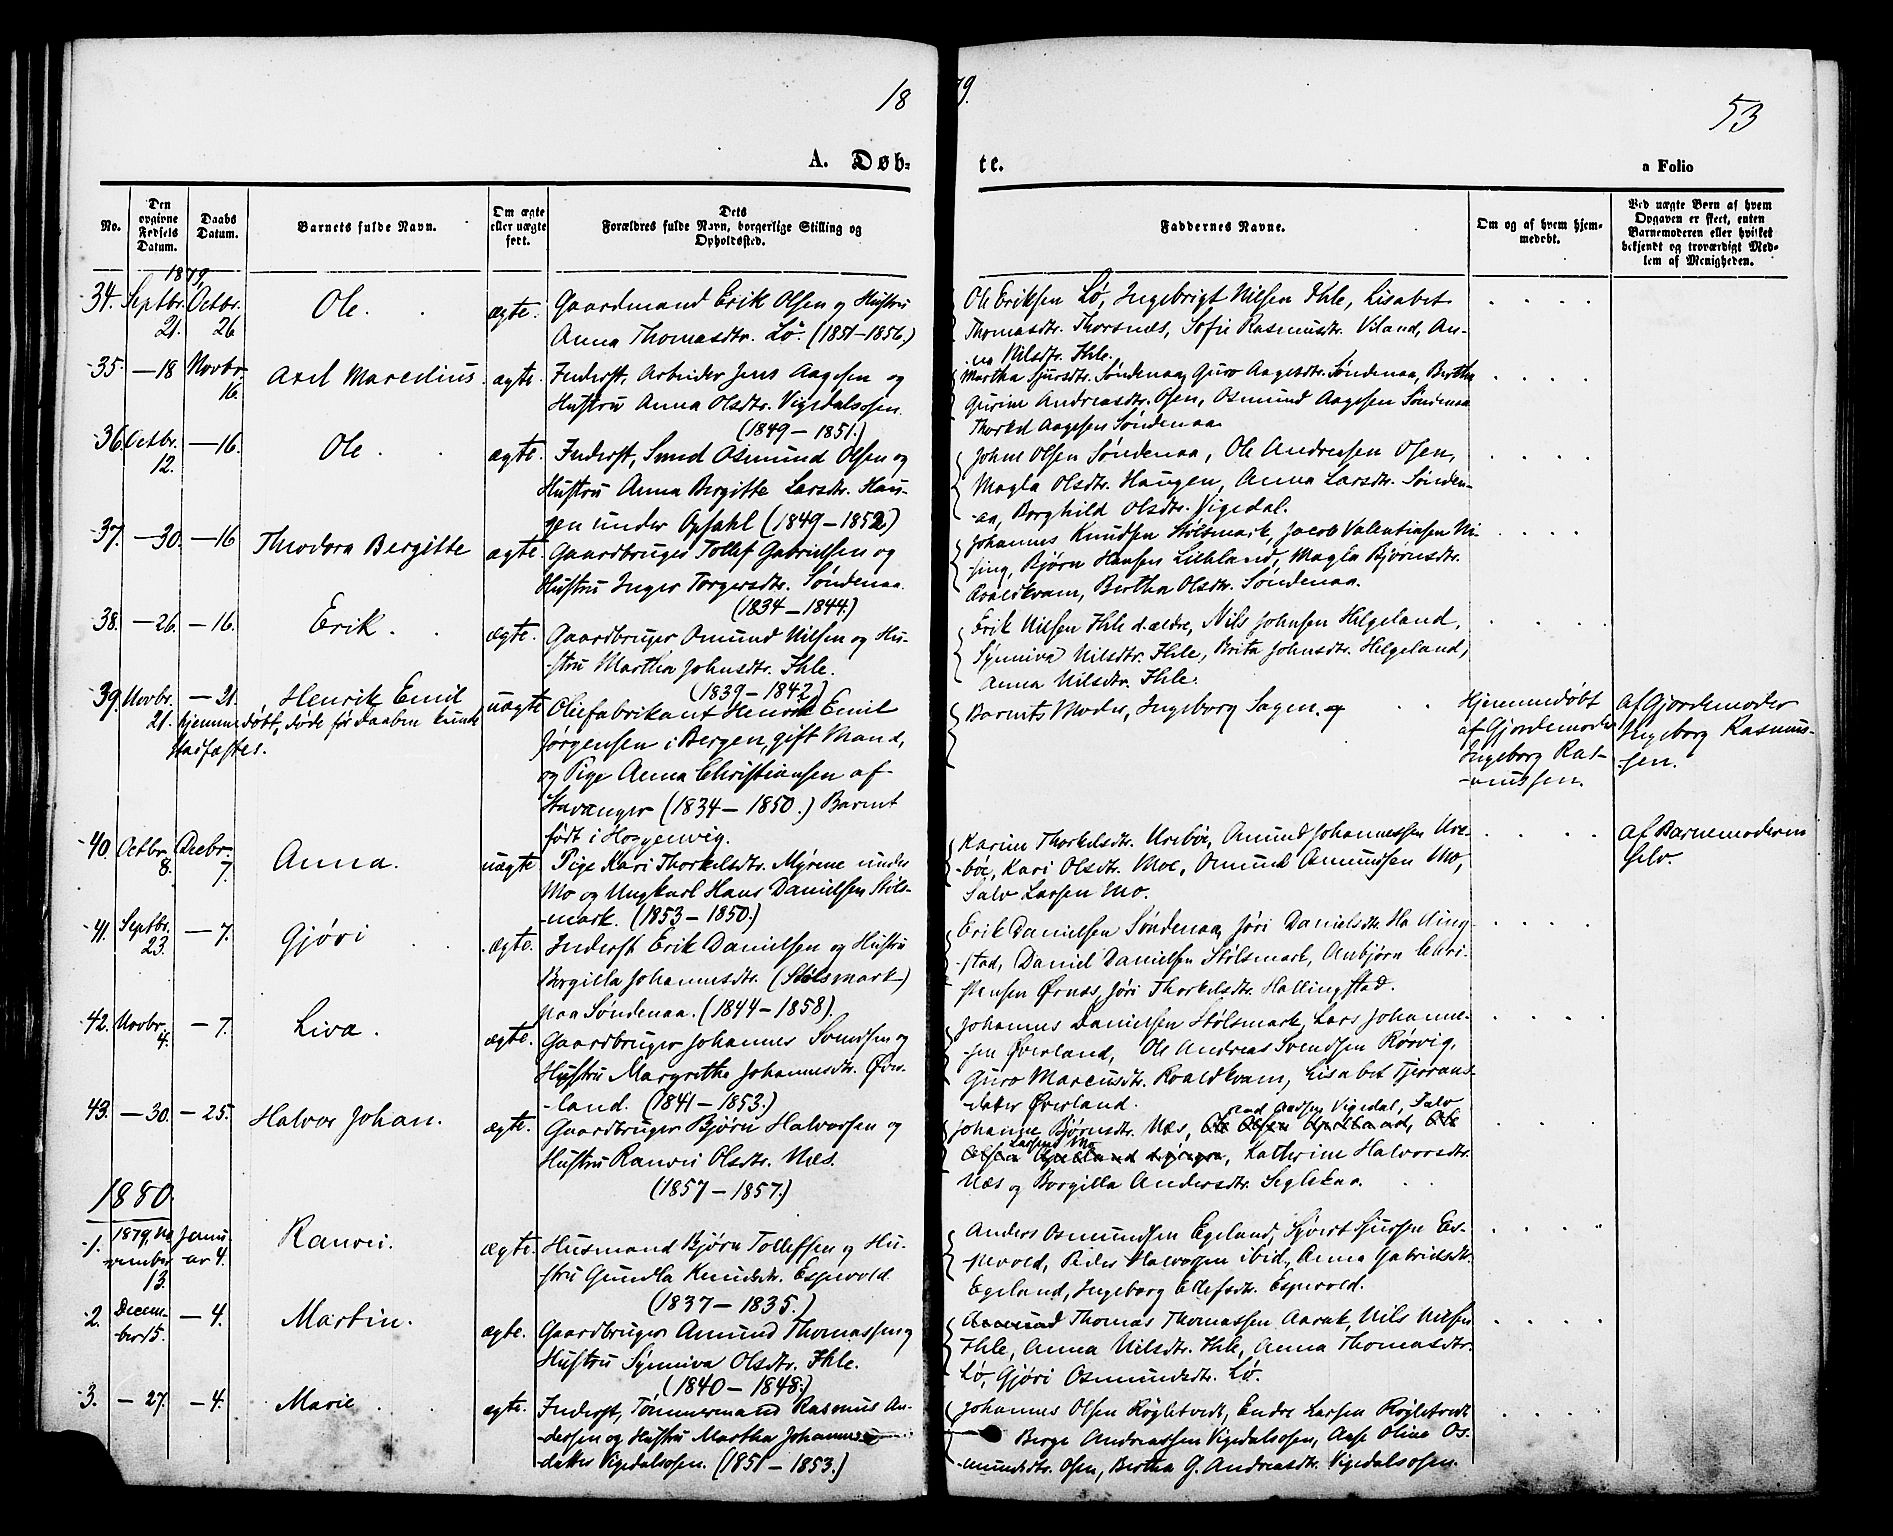 1879.
53
A. Døbte.
a Folio
No.
Den opgivne Fødsels Datum.
Daabs Datum.
Barnets fulde Navn.
Om ægte eller uægte født.
Dets Forældres fulde Navn, borgerlige Stilling og Opholdssted.
Faddernes Navne.
Om og af hvem hjemmedøbt.
Ved uægte Børn af hvem Opgaven er skeet, enten Barnemoderen eller hvilket bekjendt og troværdigt Medlem af Menigheden.
1879,
34. Septbr. 21. Octbr. 26 Ole. ægte.
Gaardmand Erik Olsen og Hustru
Anna Thomasdtr. Lø. (1851-1856.)
Ole Eriksen Lø, Ingebrigt Nilsen Ihle, Lisabet
Thomasdtr. Thorsnæs, Sofie Rasmusdtr. Viland, An-
na Nilsdtr. Ihle.
35. — 18 Novbr. 16. Axel Marelius ægte.
Inderst, Arbeider Jens Aagesen og
Hustru Anna Olsdtr. Vigedalsosen.
(1849 — 1851.)
Martha Sjursdtr. Søndenaa, Guro Aagesdtr. Søndenaa, Bertha
Gurine Andreasdtr. Osen, Osmund Aagesen Søndenaa
Thorkel Aagesen Søndenaa
36. Octbr. 12. — 16. Ole ægte.
Inderst, Smed Osmund Olsen og
Hustru Anna Bergitte Larsdtr. Hau-
gen under Opsahl (1849 — 1852)
Johne Olsen Søndenaa, Ole Andreasen Osen,
Magla Olsdtr. Haugen, Anna Larsdtr. Sønden-
aa, Borghild Olsdtr. Vigedal.
37. — 30. — 16 Theodora Bergitte ægte.
Gaardbruger Tollef Gabrielsen og
Hustru Inger Torgersdtr. Søndenaa.
(1834 — 1844.)
Johannes Knudsen Stølsmark, Jacob Valentinsen Ni-
sing, Bjørn Hansen Lilleland, Magla Bjørnsdtr.
Roaldkvam, Bertha Olsdtr. Søndenaa.
38. — 26. — 16. Erik. ægte.
Gaardbruger Omund Nilsen og Hu-
stru Martha Johnsdtr. Ihle.
(1839 — 1842)
Erik Nilsen Ihle d. ældre, Nils Johnsen Helgeland,
Synniva Nilsdtr. Ihle, Brita Johnsdtr. Helgeland,
Anna Nilsdtr. Ihle.
39. Novbr. 21. — 21. Henrik Emil uægte
hjemmedøbt, døde før Daaben kunde
stadfæstes.
Oliefabrikant Henrik Emil
Jørgensen i Bergen, gift Mand,
og Pige Anna Christiansen af
Stavanger (1834 — 1850.) Barnet
født i Hoggenvig.
Barnets Moder, Ingeborg Sagen. og
Hjemmedøbt
af Gjordemoder
Ingeborg Ras-
mussen.
Af Gjordemoder
Ingeborg Rasmus-
sen.
40. Octbr. 8. Decbr. 7. Anna. uægte
Pige Kari Thorkelsdtr. Myrene under
Mo og Ungkarl Hans Danielsen Støls-
mark. (1853 — 1850.)
Karine Thorkelsdtr. Urebøe, Amund Johannessen Ure-
bøe, Kari Olsdtr. Moe, Omund Amundsen Mo,
Salv Larsen Mo.
Af Barnemoderen
selv.
41. Septbr. 23. — 7. Gjøri ægte.
Inderst Erik Danielsen og Hustru
Bergilla Johannesdtr. (Stølsmark)
paa Søndenaa. (1844 — 1858).
Erik Danielsen Søndenaa, Jøri Danielsdtr. Halling-
stad, Daniel Danielsen Stølsmark, Anbjørn Chri-
stensen Ørnes, Jøri Thorkelsdtr. Hallingstad.
42. Novbr. 4. — 7. Liva. ægte.
Gaardbruger Johannes Svendsen og
Hustru Margrethe Johannesdtr. Øver-
land. (1841 — 1853.)
Johannes Danielsen Stølsmark, Lars Johanne-
sen Øverland, Ole Andreas Svendsen Rørvig,
Guro Marcusdtr. Roaldkvam, Lisabet Tjerans-
datter Øverland.
43. — 30. — 25. Halvor Johan. ægte.
Gaardbruger Bjørn Halvorsen og
Hustru Ranvei Olsdtr. Næs.
(1857 — 1857.)
Johanne Bjørnsdtr. Næs, Vigedal, Salv
Larsen Mo, Kathrine Halvorsdtr.
Næs og Borgilla Andersdtr. Seglskaa.
1880.
1. 1879, November 13. Januar 4. Ranvei. ægte.
Husmand Bjørn Tollefsen og Hu-
stru Gundla Knudsdtr. Espevold.
(1837 — 1835.)
Anders Osmundsen Egeland, Sjvert Sjursen Es-
pevold, Peder Halvorsen ibid., Anna Gabrielsdtr.
Egeland, Ingeborg Ellefsdtr. Espevold.
2. December 5. — 4. Martin. ægte.
Gaardbruger Amund Thomassen og
Hustru Synniva Olsdtr. Ihle.
(1840 — 1848.)
Amund Thomas Thomassen Aarak, Nils Nilsen
Ihle, Anna Nilsdtr. Ihle, Anna Thomasdtr.
Lø, Gjøri Osmundsdtr. Lø.
3. — 27. — 4. Marie ægte.
Inderst, Tømmermand Rasmus An-
dersen og Hustru Martha Johannes-
datter Vigedalsosen. (1851 — 1853.)
Johannes Olsen Røgletvedt, Endre Larsen Røgletvedt
Berge Andreassen Vigedalsosen, Aase Oline Os-
mundsdtr. Osen, Bertha G. Andreasdtr. Vigedalsosen.